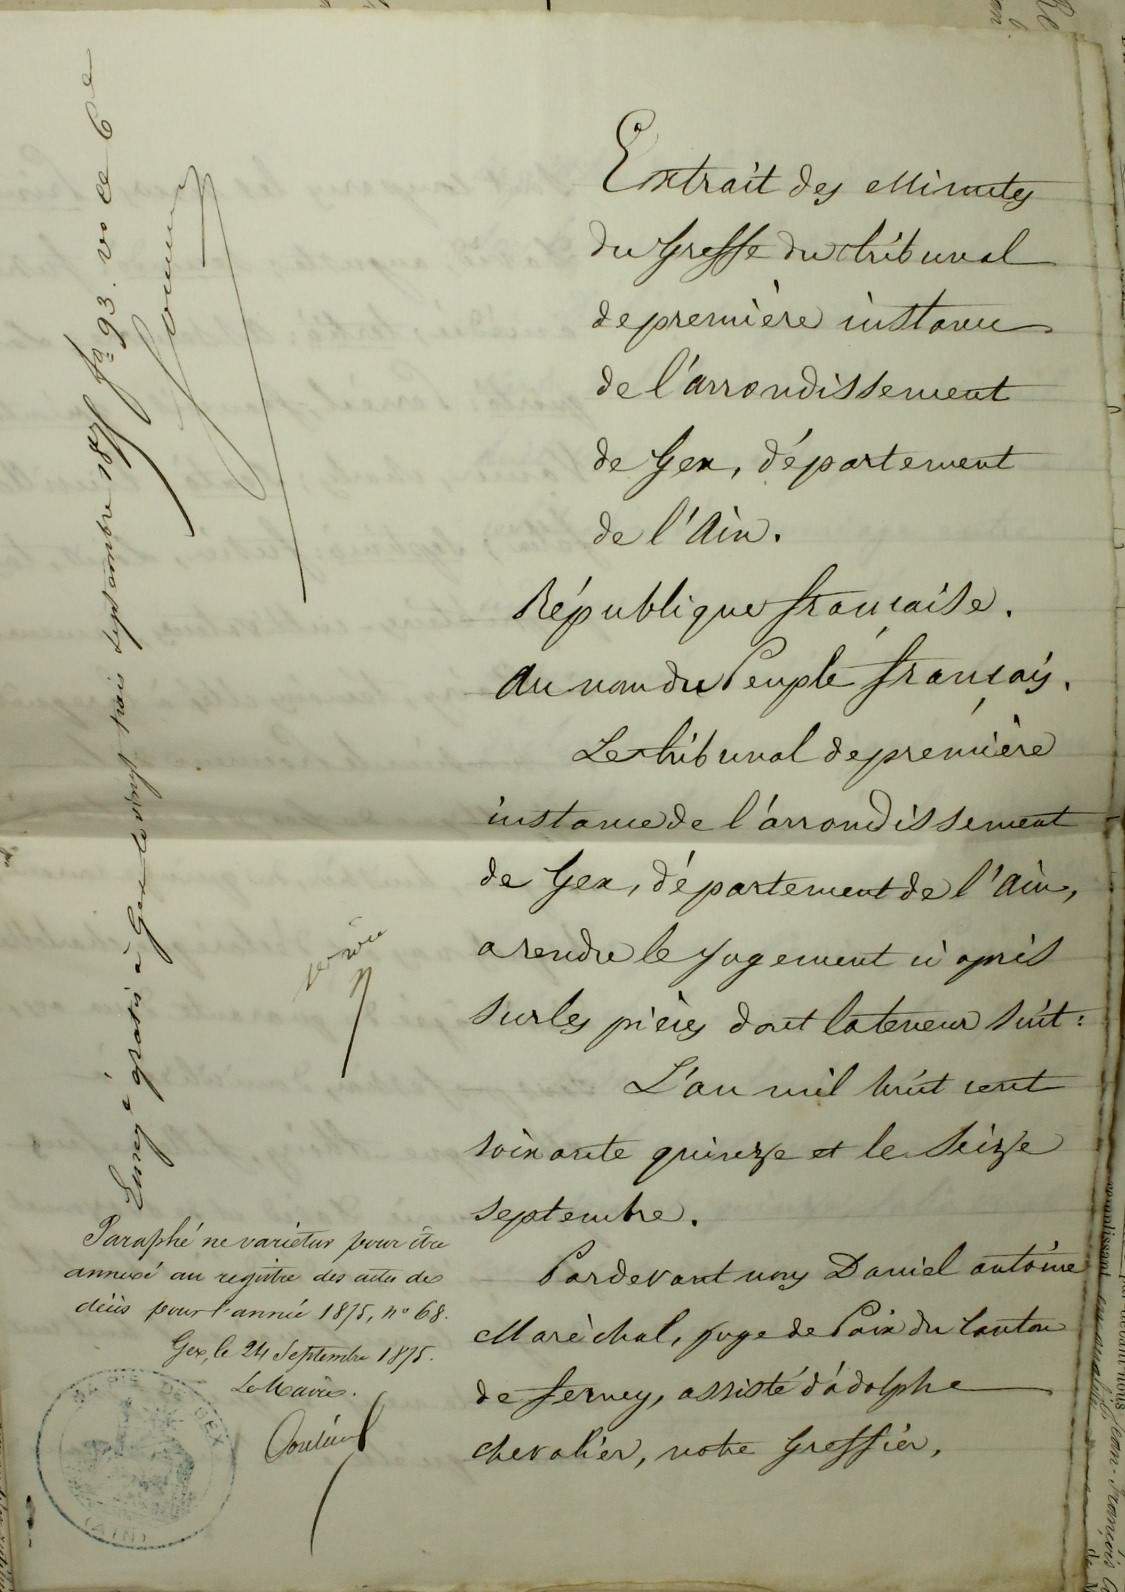 Extrait des Minutes
du Greffe du tribunal
de première instance
de l'arrondissement
de Gex, département
de l'Ain.
République française.
Au nom du Peuple français.
Le tribunal de première
instance de l'arrondissement
de Gex, département de l'Ain,
a rendu le jugement ci après
sur les pièces dont la teneur suit :
L'an mil huit cent
soixante quinze et le seize
septembre.
Pardevant nous Daniel antoine
Maréchal, juge de Paix du Canton
de ferney, assisté d'adolphe
chevalier, notre Greffier,
Enreg é gratis à Gex le vingt trois septembre 1875 fo 93. vo ce 6e
Paraphé ne varietur pour être
annexé au registre des actes de
décès pour l'année 1875, no 68.
Gex, le 24 Septembre 1875.
Le Maire.
MAIRIE DE GEX
(AIN)